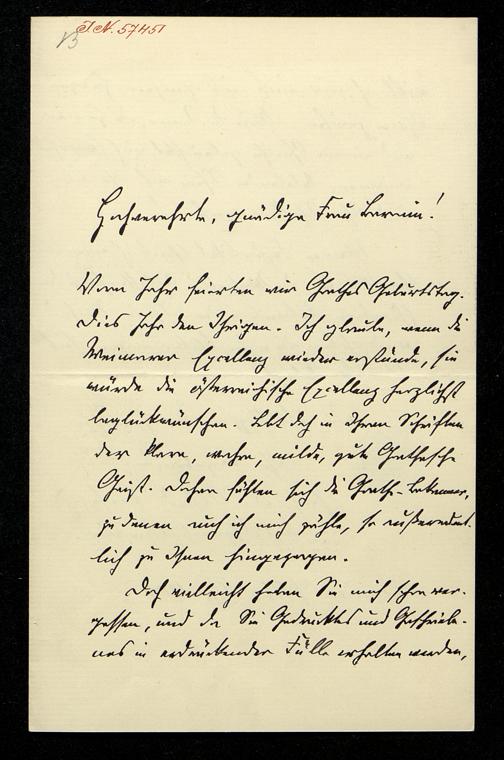 I. N. 57451
Hochverehrte, gnädige Frau Baronin!
Vorm Jahr feierten wir Goethes Geburtstag.
Dies Jahr den Ihrigen. Ich glaube, wenn die
Weimarer Excellenz wieder erstünde, sie
würde die österreichische Excellenz herzlichst
beglückwünschen. Lebt doch in Ihren Schriften
der klare, wahre, milde, gute Goethesche
Geist. Daher fühlen sich die Goethe-Bekenner,
zu denen auch ich mich zähle, so außerordent-
lich zu Ihnen hingezogen.
Doch vielleicht haben Sie mich schon ver-
gessen, und da Sie Gedrucktes und Geschriebe-
nes in erdrückender Fülle erhalten werden,